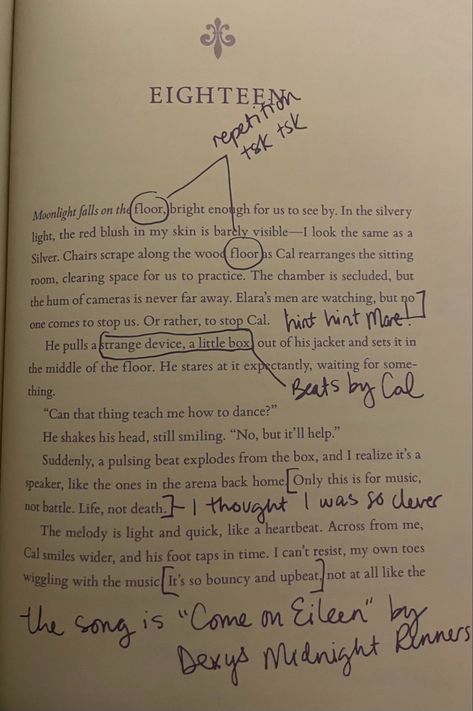 EIGHTEEN
repetition
tsk tsk
Moonlight falls on the floor, bright enough for us to see by. In the silvery
light, the red blush in my skin is barely visible—I look the same as a
Silver. Chairs scrape along the wood floor as Cal rearranges the sitting
room, clearing space for us to practice. The chamber is secluded, but
the hum of cameras is never far away. Elara's men are watching, but no
one comes to stop us. Or rather, to stop Cal.
hint hint Mare!
He pulls a strange device, a little box, out of his jacket and sets it in
the middle of the floor. He stares at it expectantly, waiting for some-
thing.
Beats by Cal
"Can that thing teach me how to dance?"
He shakes his head, still smiling. "No, but it'll help."
Suddenly, a pulsing beat explodes from the box, and I realize it's a
speaker, like the ones in the arena back home. Only this is for music,
not battle. Life, not death.
I thought I was so clever
The melody is light and quick, like a heartbeat. Across from me,
Cal smiles wider, and his foot taps in time. I can't resist, my own toes
wiggling with the music. It's so bouncy and upbeat, not at all like the
the song is "Come on Eileen" by
Dexys Midnight Runners